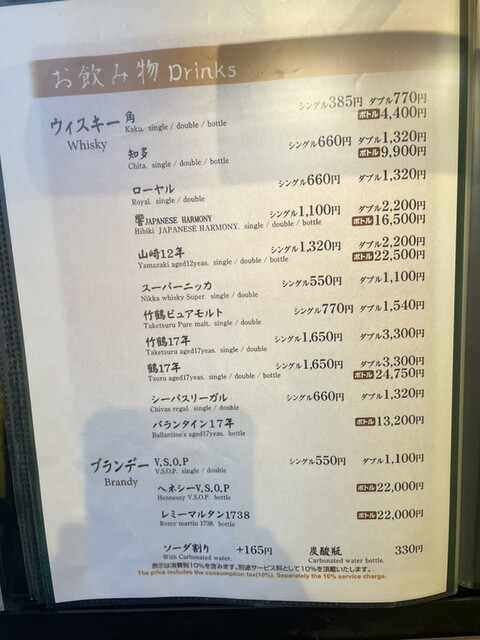 お飲み物 Drinks
ウィスキー 角 シングル385円 ダブル770円
Whisky Kaku. single / double / bottle ボトル4,400円
知多 シングル660円 ダブル1,320円
Chita. single / double / bottle ボトル9,900円
ローヤル シングル660円 ダブル1,320円
Royal. single / double
響JAPANESE HARMONY シングル1,100円 ダブル2,200円
Hibiki JAPANESE HARMONY. single / double / bottle ボトル16,500円
山崎12年 シングル1,320円 ダブル2,200円
Yamazaki aged12yeas. single / double / bottle ボトル22,500円
スーパーニッカ シングル550円 ダブル1,100円
Nikka whisky Super. single / double
竹鶴ピュアモルト シングル770円 ダブル1,540円
Taketsuru Pure malt. single / double
竹鶴17年 シングル1,650円 ダブル3,300円
Taketsuru aged17yeas. single / double
鶴17年 シングル1,650円 ダブル3,300円
Tsuru aged17yeas. single / double / bottle ボトル24,750円
シーバスリーガル シングル660円 ダブル1,320円
Chivas regal. single / double
バランタイン17年 ボトル13,200円
Ballantine's aged17yeas. bottle
ブランデー V.S.O.P シングル550円 ダブル1,100円
Brandy V.S.O.P. single / double
ヘネシーV.S.O.P ボトル22,000円
Hennessy V.S.O.P. bottle
レミーマルタン1738 ボトル22,000円
Remy martin 1738. bottle
ソーダ割り +165円 炭酸瓶 330円
With Carbonated water. Carbonated water bottle.
表示は消費税10%を含みます。別途サービス料として10%を頂戴いたします。
The price includes the consumption tax(10%). Separately the 10% service charge.